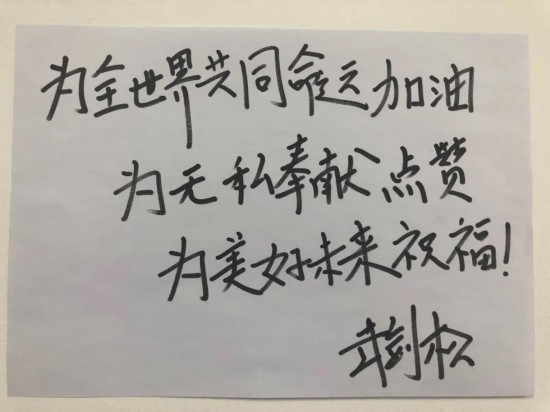 为全世界共同命运加油
为无私奉献点赞
为美好未来祝福!